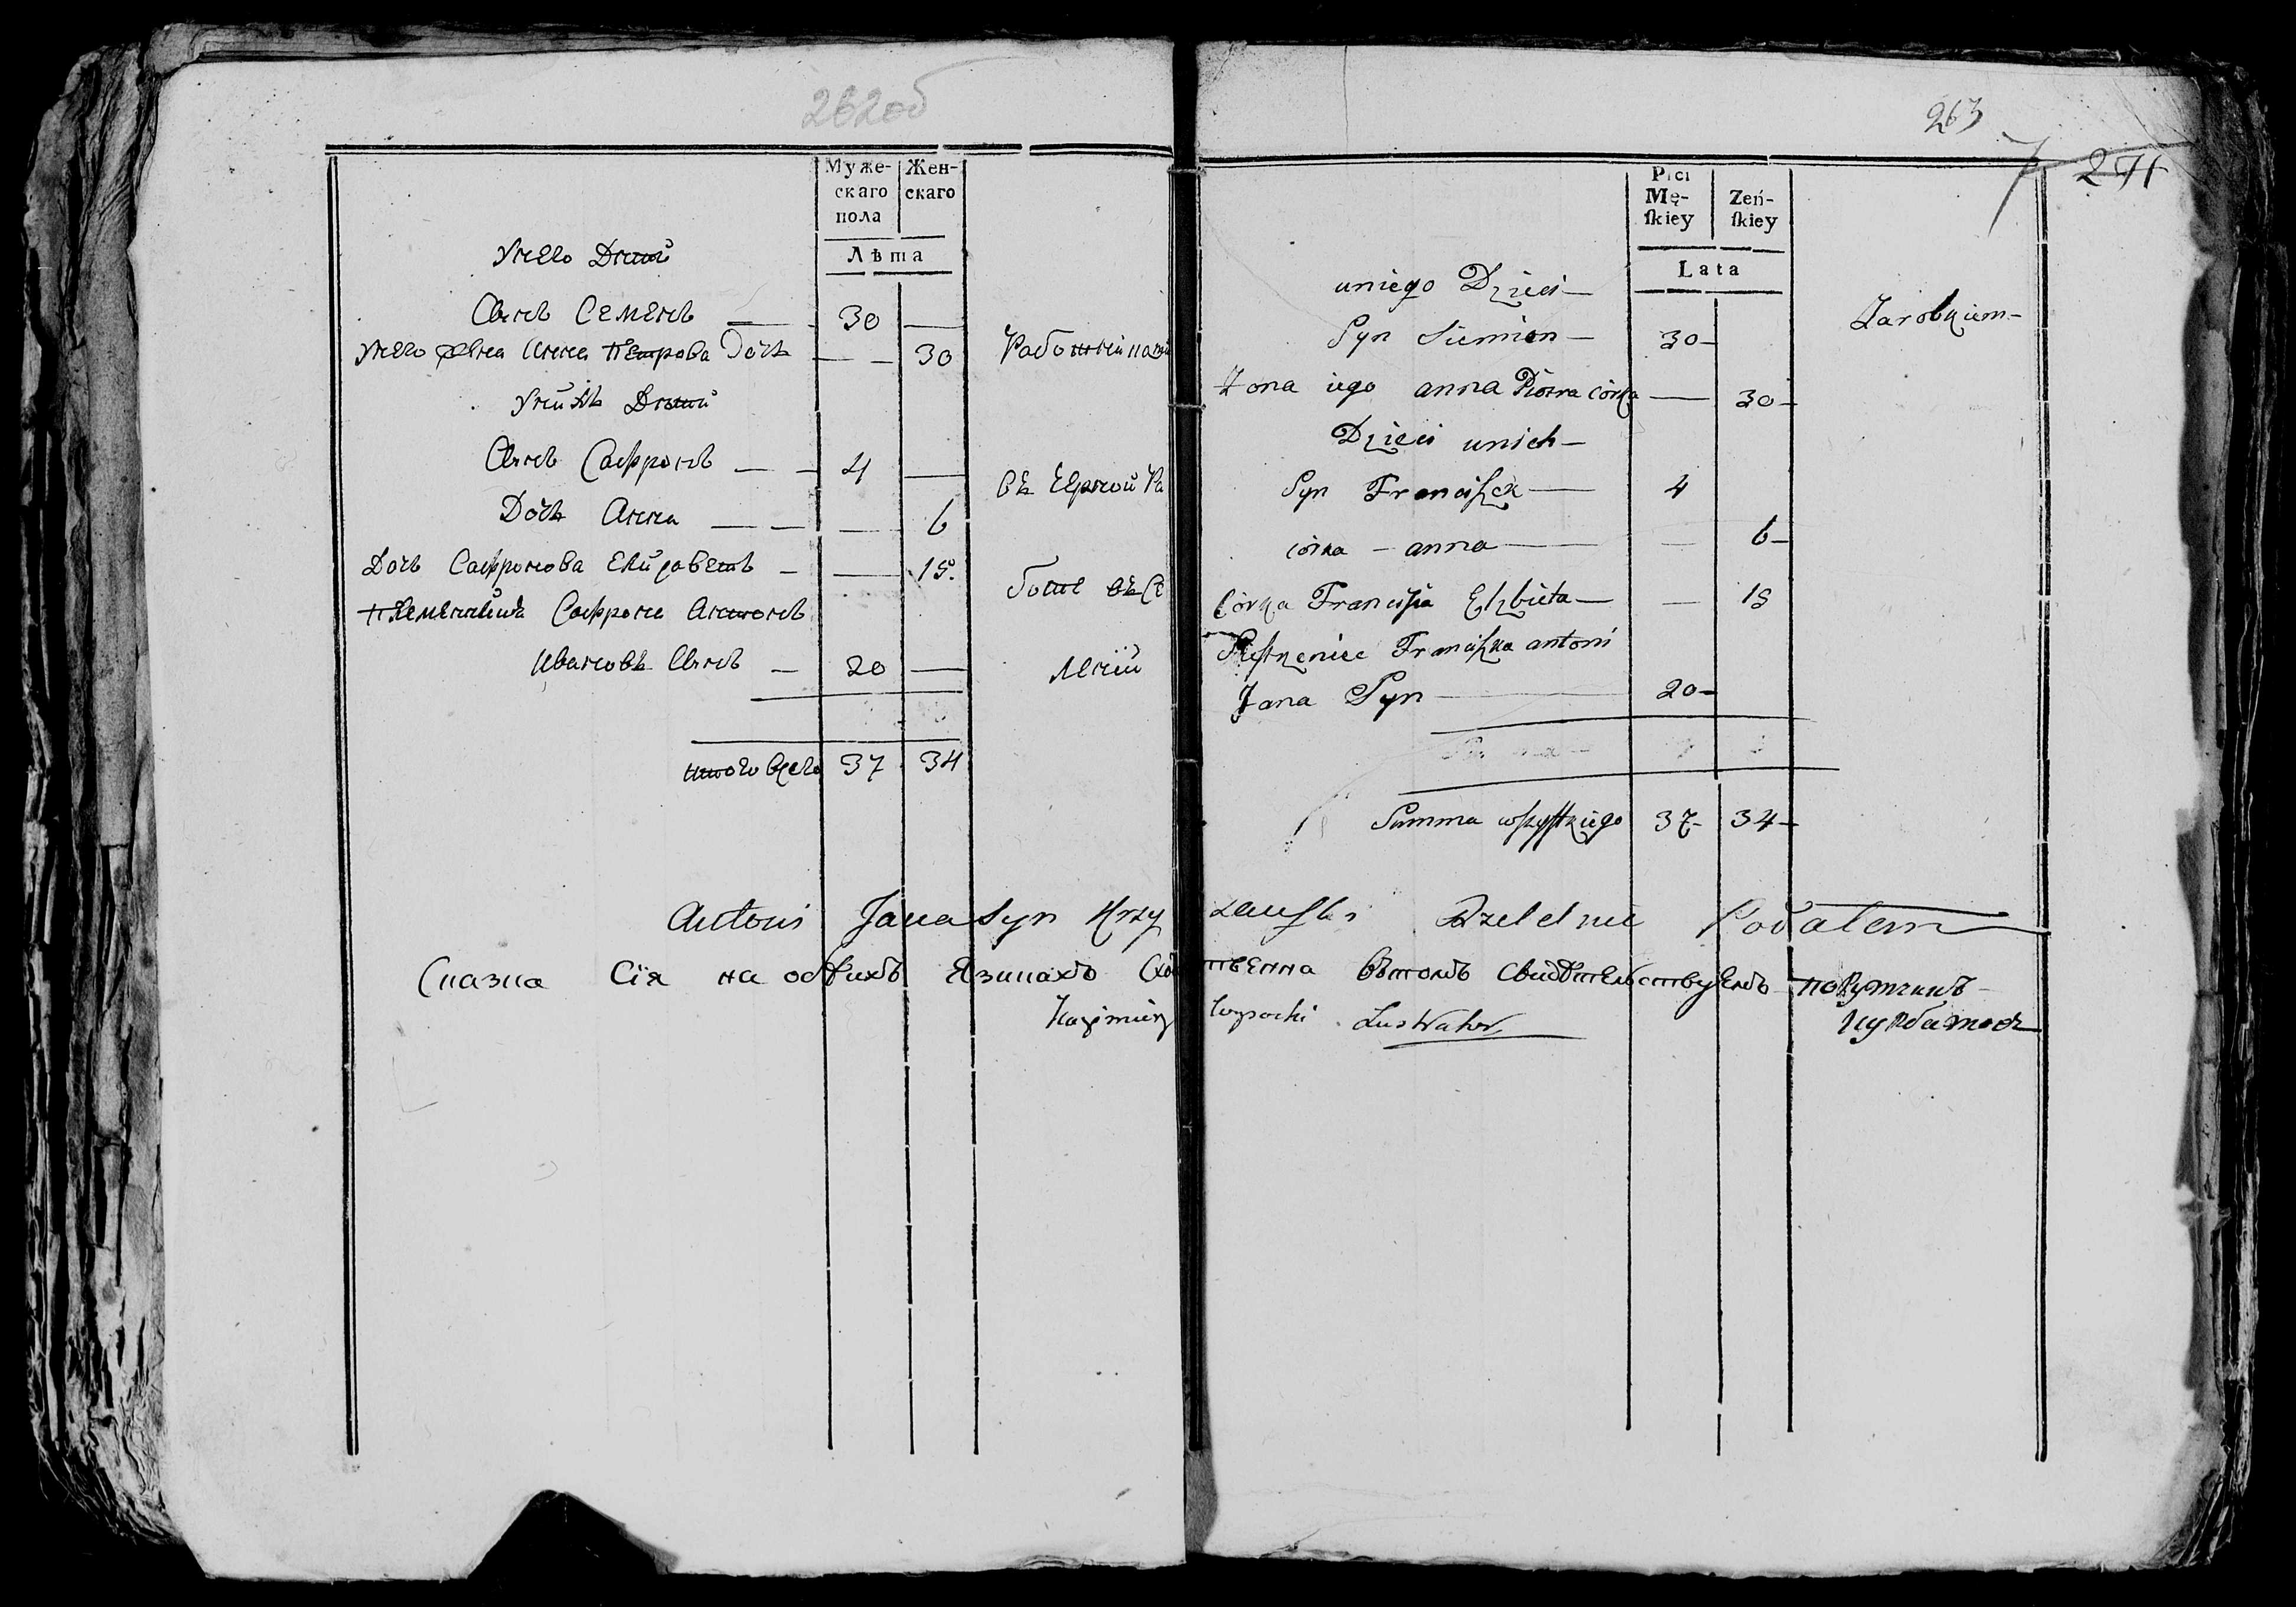 262об
Муже-
скаго
пола
Жен-
скаго
Лѣта
Унего Дѣти
Сынъ Семенъ — 30 —
Унего жена Анна Петрова Дочь — — 30
Унихъ Дѣти
Сынъ Сафронъ — — 4 —
Дочь Анна — — — 6
Дочь Сафронова Елизабетъ — — 15
Племянникъ Сафрона Антонъ
Ивановъ Сынъ — 20 —
итого всего 37 34
въ черной Ра
боте
263
271
Płci
Mę-
ſkiey
Zeń-
ſkiey
Lata
uniego Dzieci —
Syn Siemion — 30 —
Żona iego anna Piotra córka — 30 —
Dzieci unich —
Syn Franciſzek — 4
córka — anna — — 6 —
Córka Franciſzka Elzbieta — — 15
Sieſtrzeniec Franciſzka antoni
Jana Syn — 20 —
Summa wſzyſtkiego 37 — 34 —
Zarobkiem —
Antoni Jana Syn Krzy zanſki Rzetelnie Podałem
Сказка Сія на обѣихъ Языкахъ Сходственна вътомъ свидѣтельствуемъ порутчикъ
Kazimierz Wysocki Lustrator